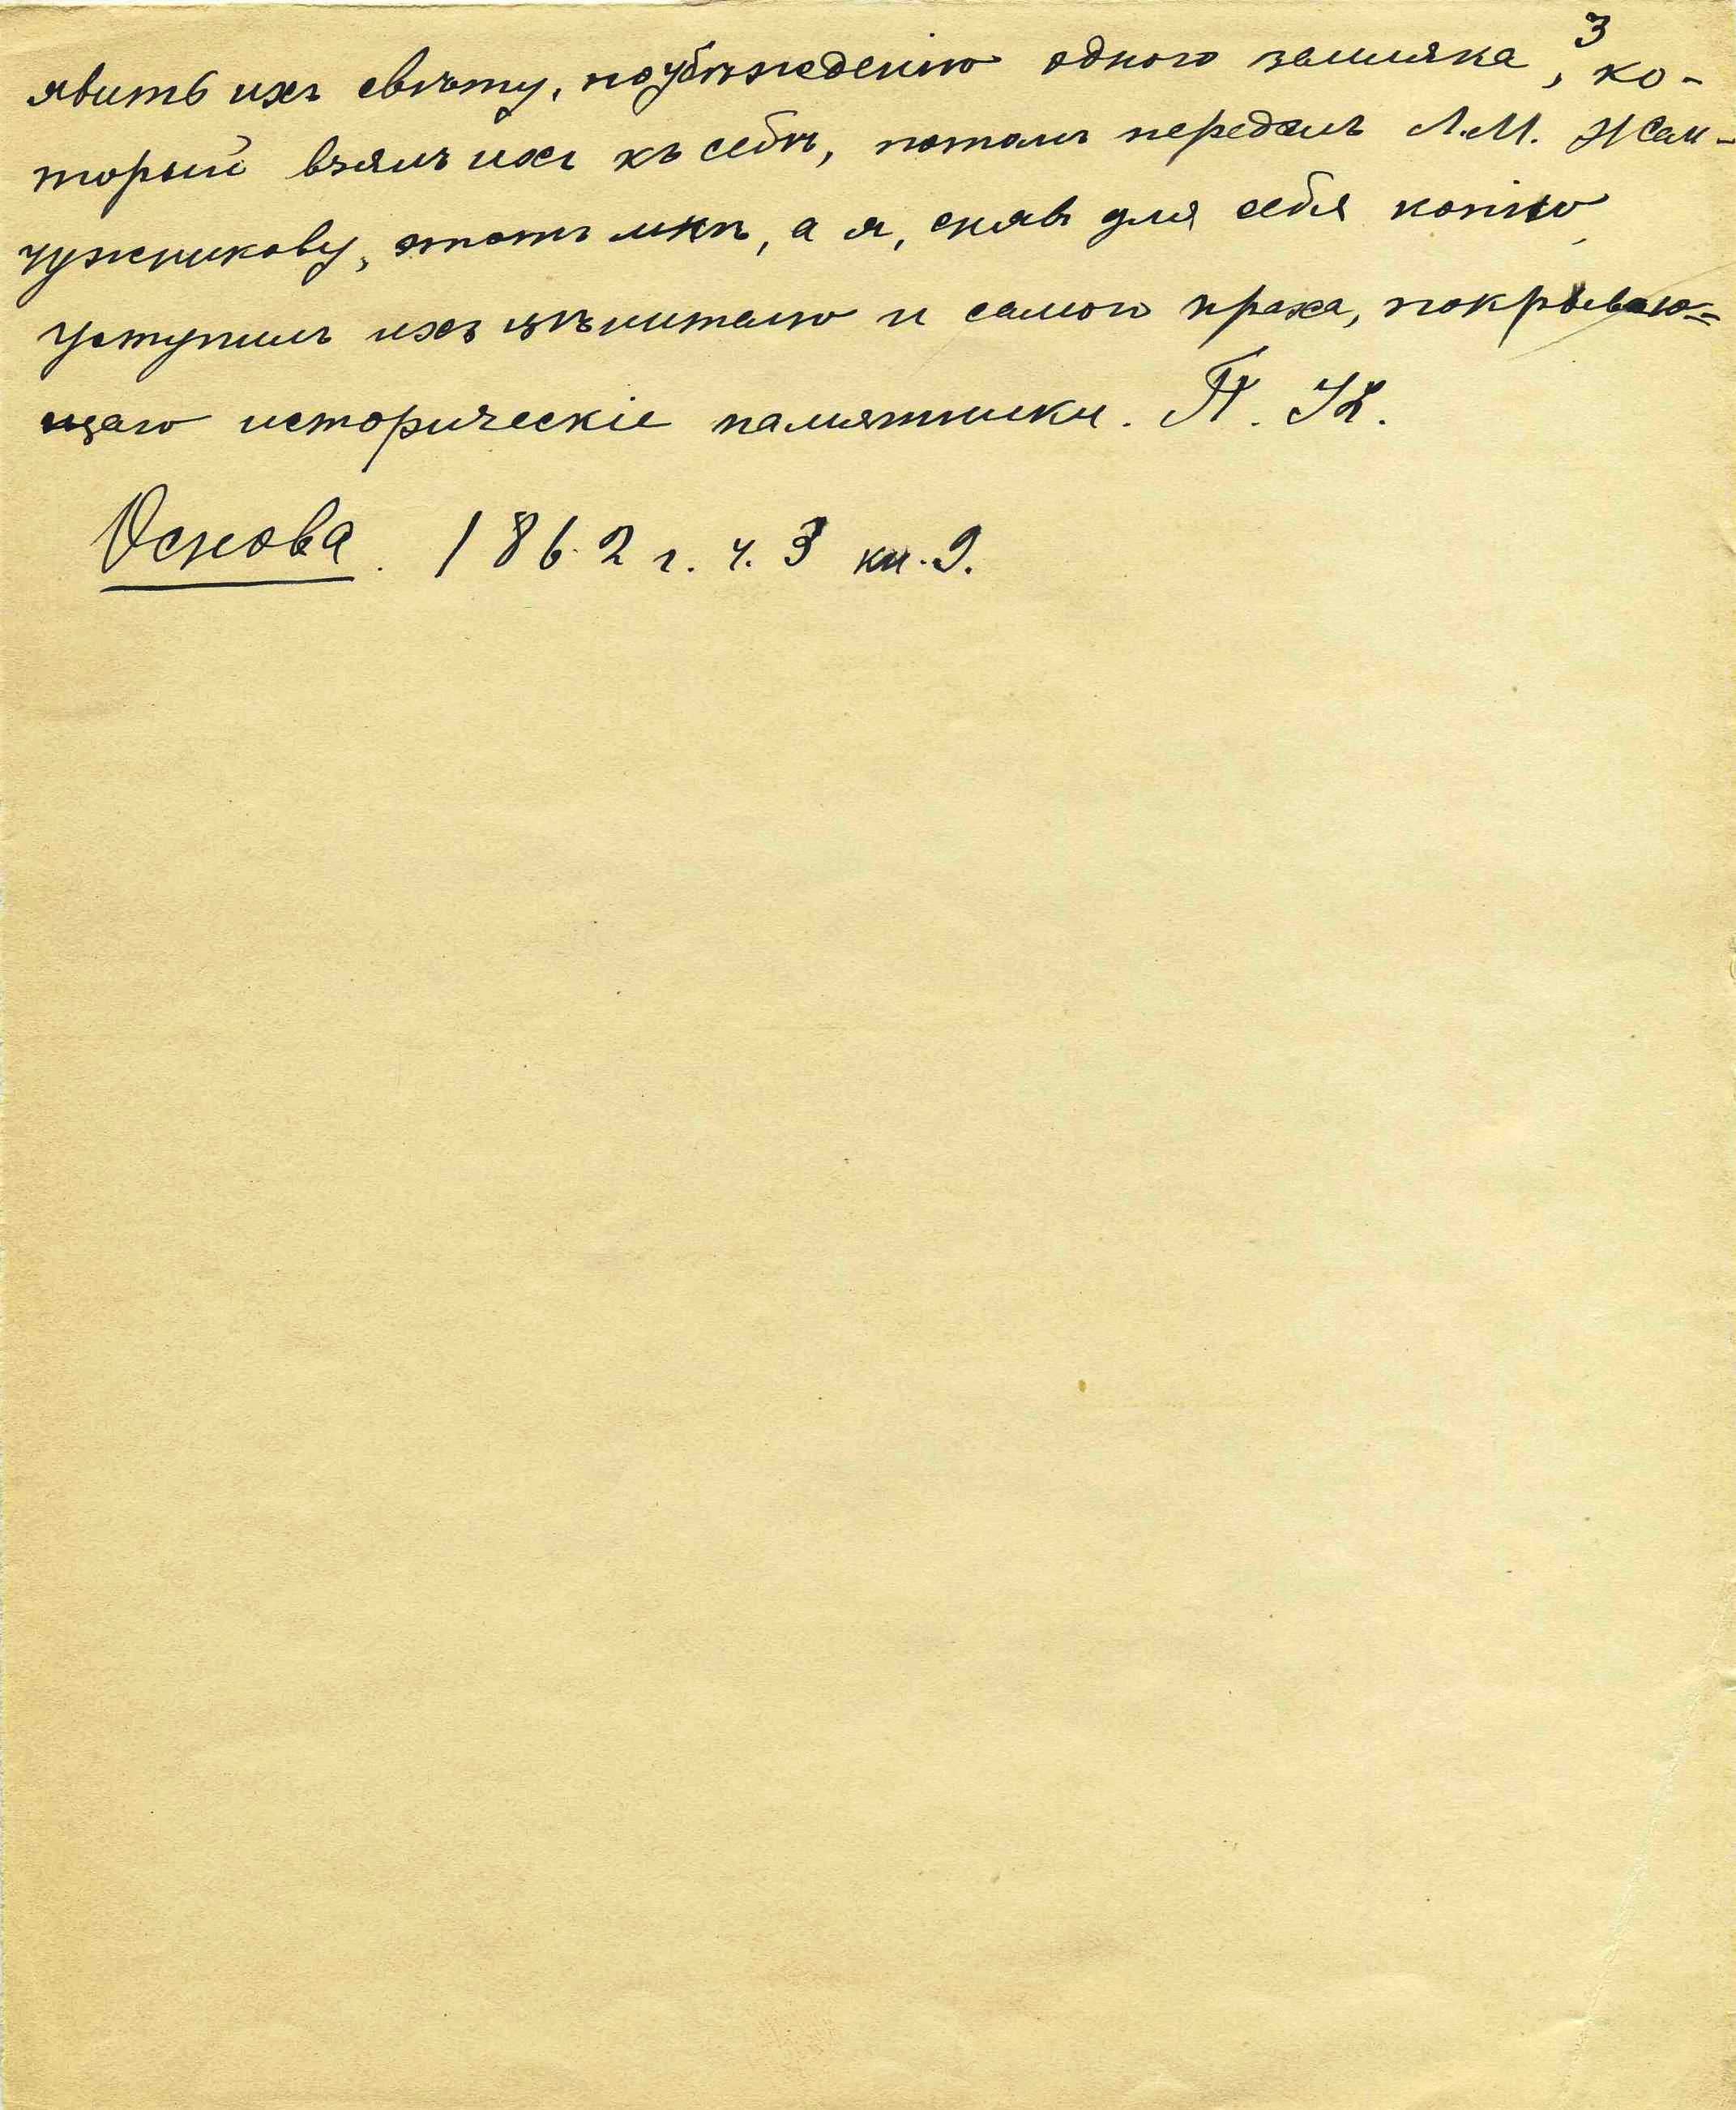 3
явить ихъ свѣту, по убѣжденію одного земляка, ко-
торый взялъ ихъ къ себѣ, потомъ передалъ Л.М. Жем-
чужникову, этотъ мнѣ, а я, снявъ для себя копію,
уступилъ ихъ цѣнителю и самого праха, покрываю-
щаго историческіе памятники. П. К.
Основа. 1862 г. ч. 3 кн. 9.